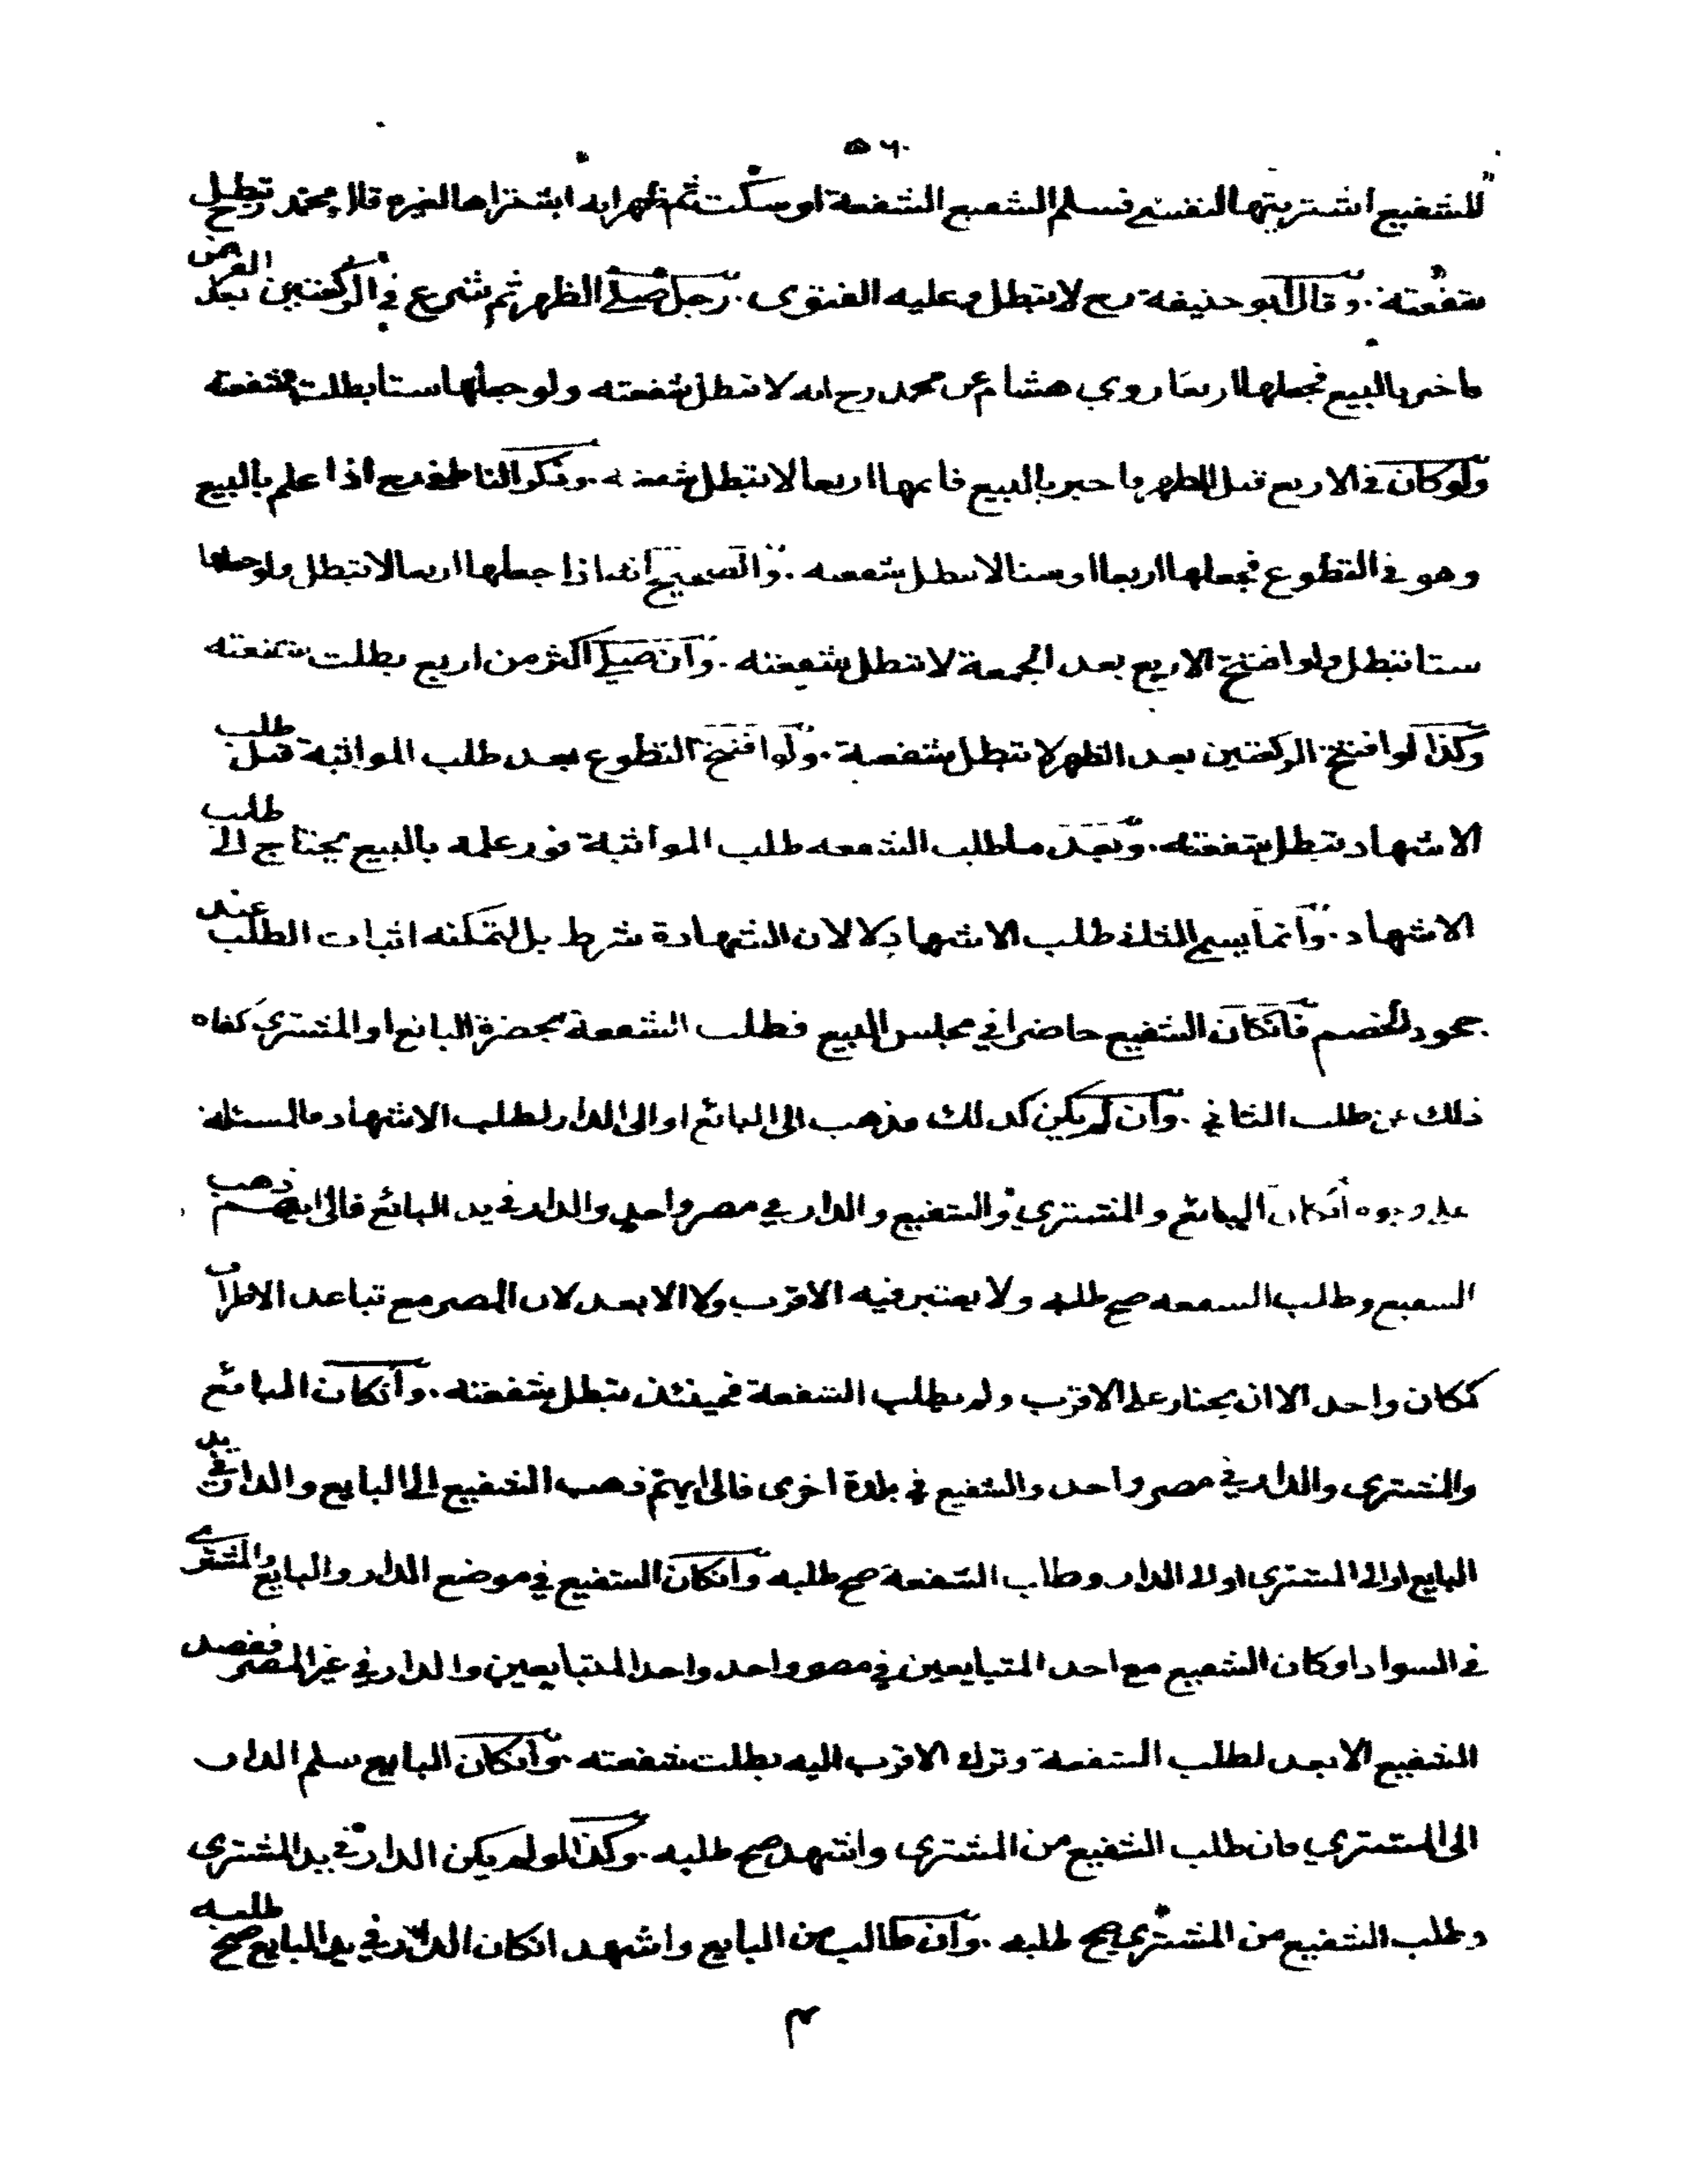 ٥٦٠
للشفيع اشتريتها لنفسي فسلم الشفيع الشفعة او سكت ثم ظهر انه اشتراها لغيره قال محمد رح تبطل
شفعته . وقال ابو حنيفة رح لا تبطل وعليه الفتوى . رجل صلى الظهر ثم شرع في الركعتين بعد الفرض
فاخبر بالبيع فجعلها اربعا روي هشام عن محمد رح انه لا تبطل شفعته ولو جعلها ستا بطلت شفعته
ولو كان في الاربع قبل الظهر فاخبر بالبيع فاتمها اربعا لا تبطل شفعته . وذكر الناطفي رح اذا علم بالبيع
وهو في التطوع فجعلها اربعا او ستا لا تبطل شفعته . والصحيح انه اذا جعلها اربعا لا تبطل ولو جعلها
ستا تبطل ولو افتتح الاربع بعد الجمعة لا تبطل شفعته . وان صلى اكثر من اربع بطلت شفعته
وكذا لو افتتح الركعتين بعد الظهر لا تبطل شفعته . ولو افتتح التطوع بعد طلب المواثبة قبل طلب
الاشهاد تبطل شفعته . وبعد ما طلب الشفعه طلب المواثبة فور علمه بالبيع يحتاج الى طلب
الاشهاد . وانما يسمى الثاني طلب الاشهاد لا لان الشهادة شرط بل لتمكنه اثبات الطلب عند
جحود الخصم فانكان الشفيع حاضرا في مجلس البيع فطلب الشفعة بحضرة البائع او المشتري كفاه
ذلك عن طلب الثاني . وان لم يكن كذلك فذهب الى البائع او الى الدار لطلب الاشهاد فالمسئلة
على وجوه انكان البائع والمشتري والشفيع والدار في مصر واحد والدار في يد البائع فالى ايهم ذهب
الشفيع وطلب الشفعه صح طلبه ولا يعتبر فيه الاقرب ولا الابعد لان المصر مع تباعد الاطراف
كمكان واحد الا ان يجتاز على الاقرب ولم يطلب الشفعة فحينئذ تبطل شفعته . وانكان البائع
والمشتري والدار في مصر واحد والشفيع في بلدة اخرى فالى ايهم ذهب الشفيع الى البايع والدار في يد
البايع او الى المشتري او الى الدار وطلب الشفعة صح طلبه وانكان الشفيع في موضع الدار والبايع والمشتري
في السواد او كان الشفيع مع احد المتبايعين في مصر واحد واحد المتبايعين والدار في غير المصر فقصد
الشفيع الابعد لطلب الشفعة وترك الاقرب اليه بطلت شفعته . وانكان البايع سلم الدار
الى المشتري فان طلب الشفيع من المشتري واشهد صح طلبه . وكذا لو لم يكن الدار في يد المشتري
وطلب الشفيع من المشتري صح طلبه . وان طالب من البايع واشهد انكان الدار في يد البايع صح طلبه
م